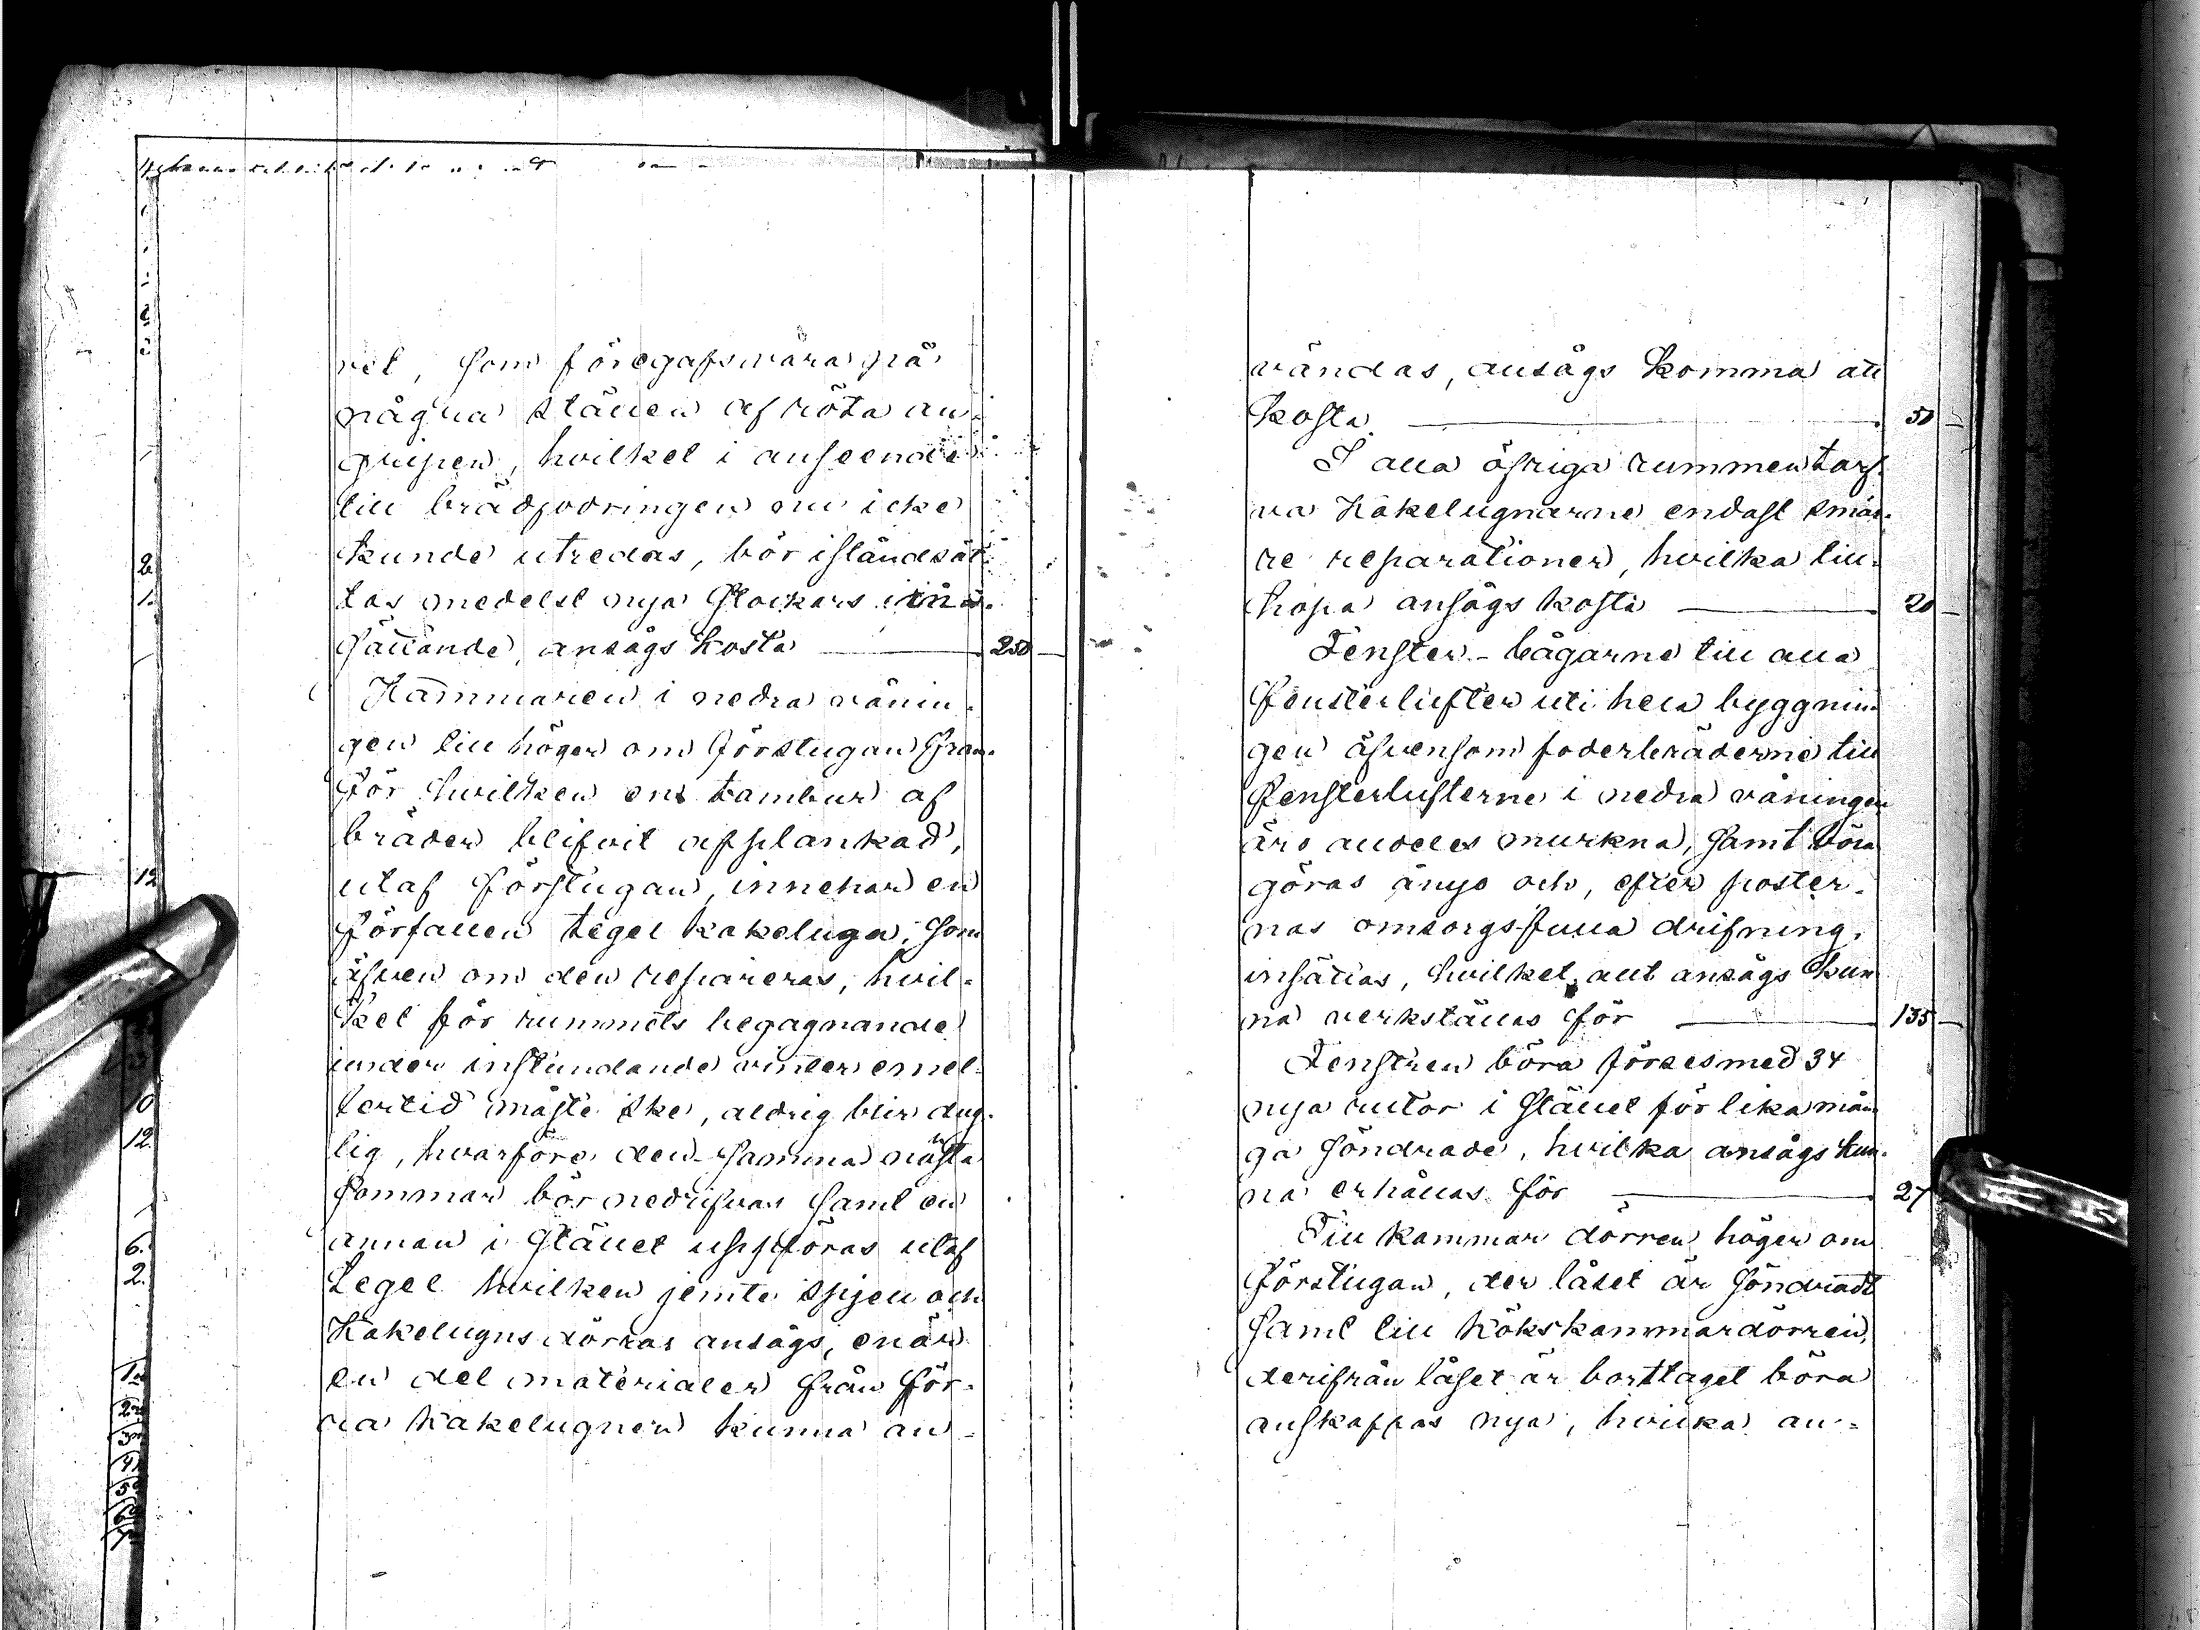 ret, som föregafs vara på
några ställen af röta an-
gripen, hvilket i anseende
till brädfodringen nu icke
kunde utredas, bör iståndsät-
tas medelst nya stockars
sättande, ansågs kosta 250
Kammaren i nedra vånin-
gen till höger om förstugan fram-
för hvilken en tambur af
bräder blifvit afplankad,
utaf förstugan, innehar en
förfallen tegel kakelugn, som
äfven om den repareras, hvil-
ket för rummets begagnande
under instundande vinter emel-
lertid måste ske, aldrig blir dug-
lig, hvarföre den samma nästa
sommar bör nedrifvas samt en
annan i stället uppföras utaf
tegel hvilken jemte spjell och
Kakelugnsdörrar ansågs, enär
en del materialer från för-
ra kakelugnen kunna an-
vändas, ansågs komma att
kosta 50
I alla öfriga rummen tarf-
va Kakelugnarne endast smär-
re reparationer, hvilka till-
hopa ansågs kosta 20
Fenster-bågarne till alla
fensterlufter uti hela byggnin-
gen äfvensom foderbräderne till
fensterlufterne i nedra våningen
äro alldeles murkna, samt böra
göras ånyo och, efter poster-
nas omsorgsfulla drifning,
insättas, hvilket allt ansågs kun-
na verkställas för 135
Fenstren böra förses med 34
nya rutor i stället för lika mån-
ga söndrade, hvilka ansågs kun-
na erhållas för 27
Till kammar dörren höger om
förstugan, der låset är söndradt
samt till kökskammardörren,
derifrån låset är borttaget böra
anskaffas nya, hvilka an-